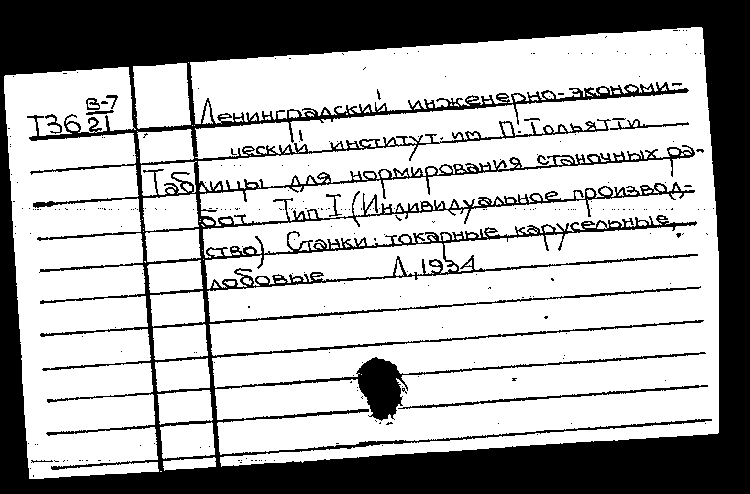 В-7
Т36 21
Ленинградский инженерно-экономи-
ческий институт им. П. Тольятти.
Таблицы для нормирования станочных ра-
бот. Тип I (Индивидуальное производ-
ство). Станки: токарные, карусельные,
лобовые. Л., 1934.